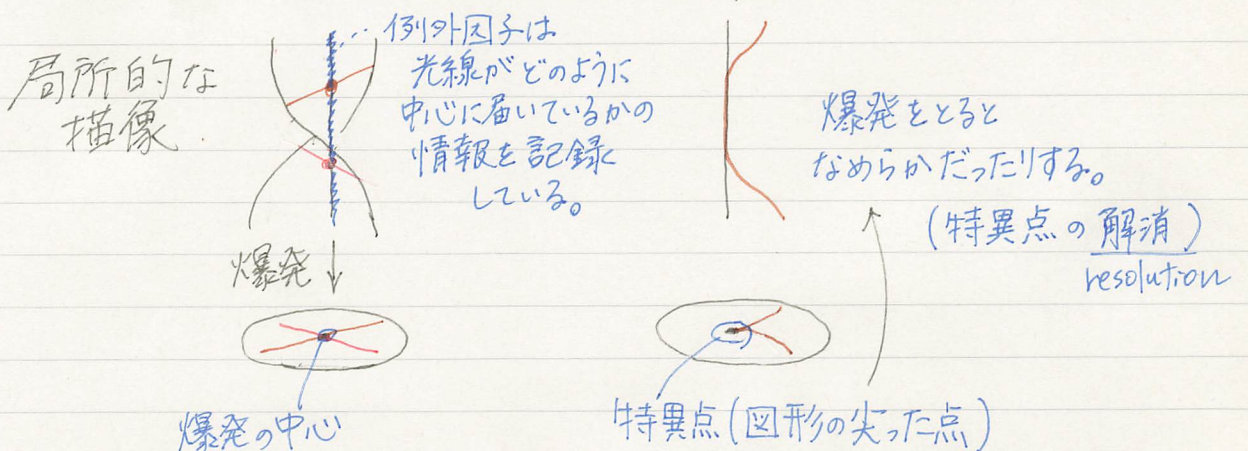 局所的な
描像
例外因子は
光線がどのように
中心に届いているかの
情報を記録
している。
爆発
爆発の中心
爆発をとると
なめらかだったりする。
(特異点の解消)
resolution
特異点(図形の尖った点)